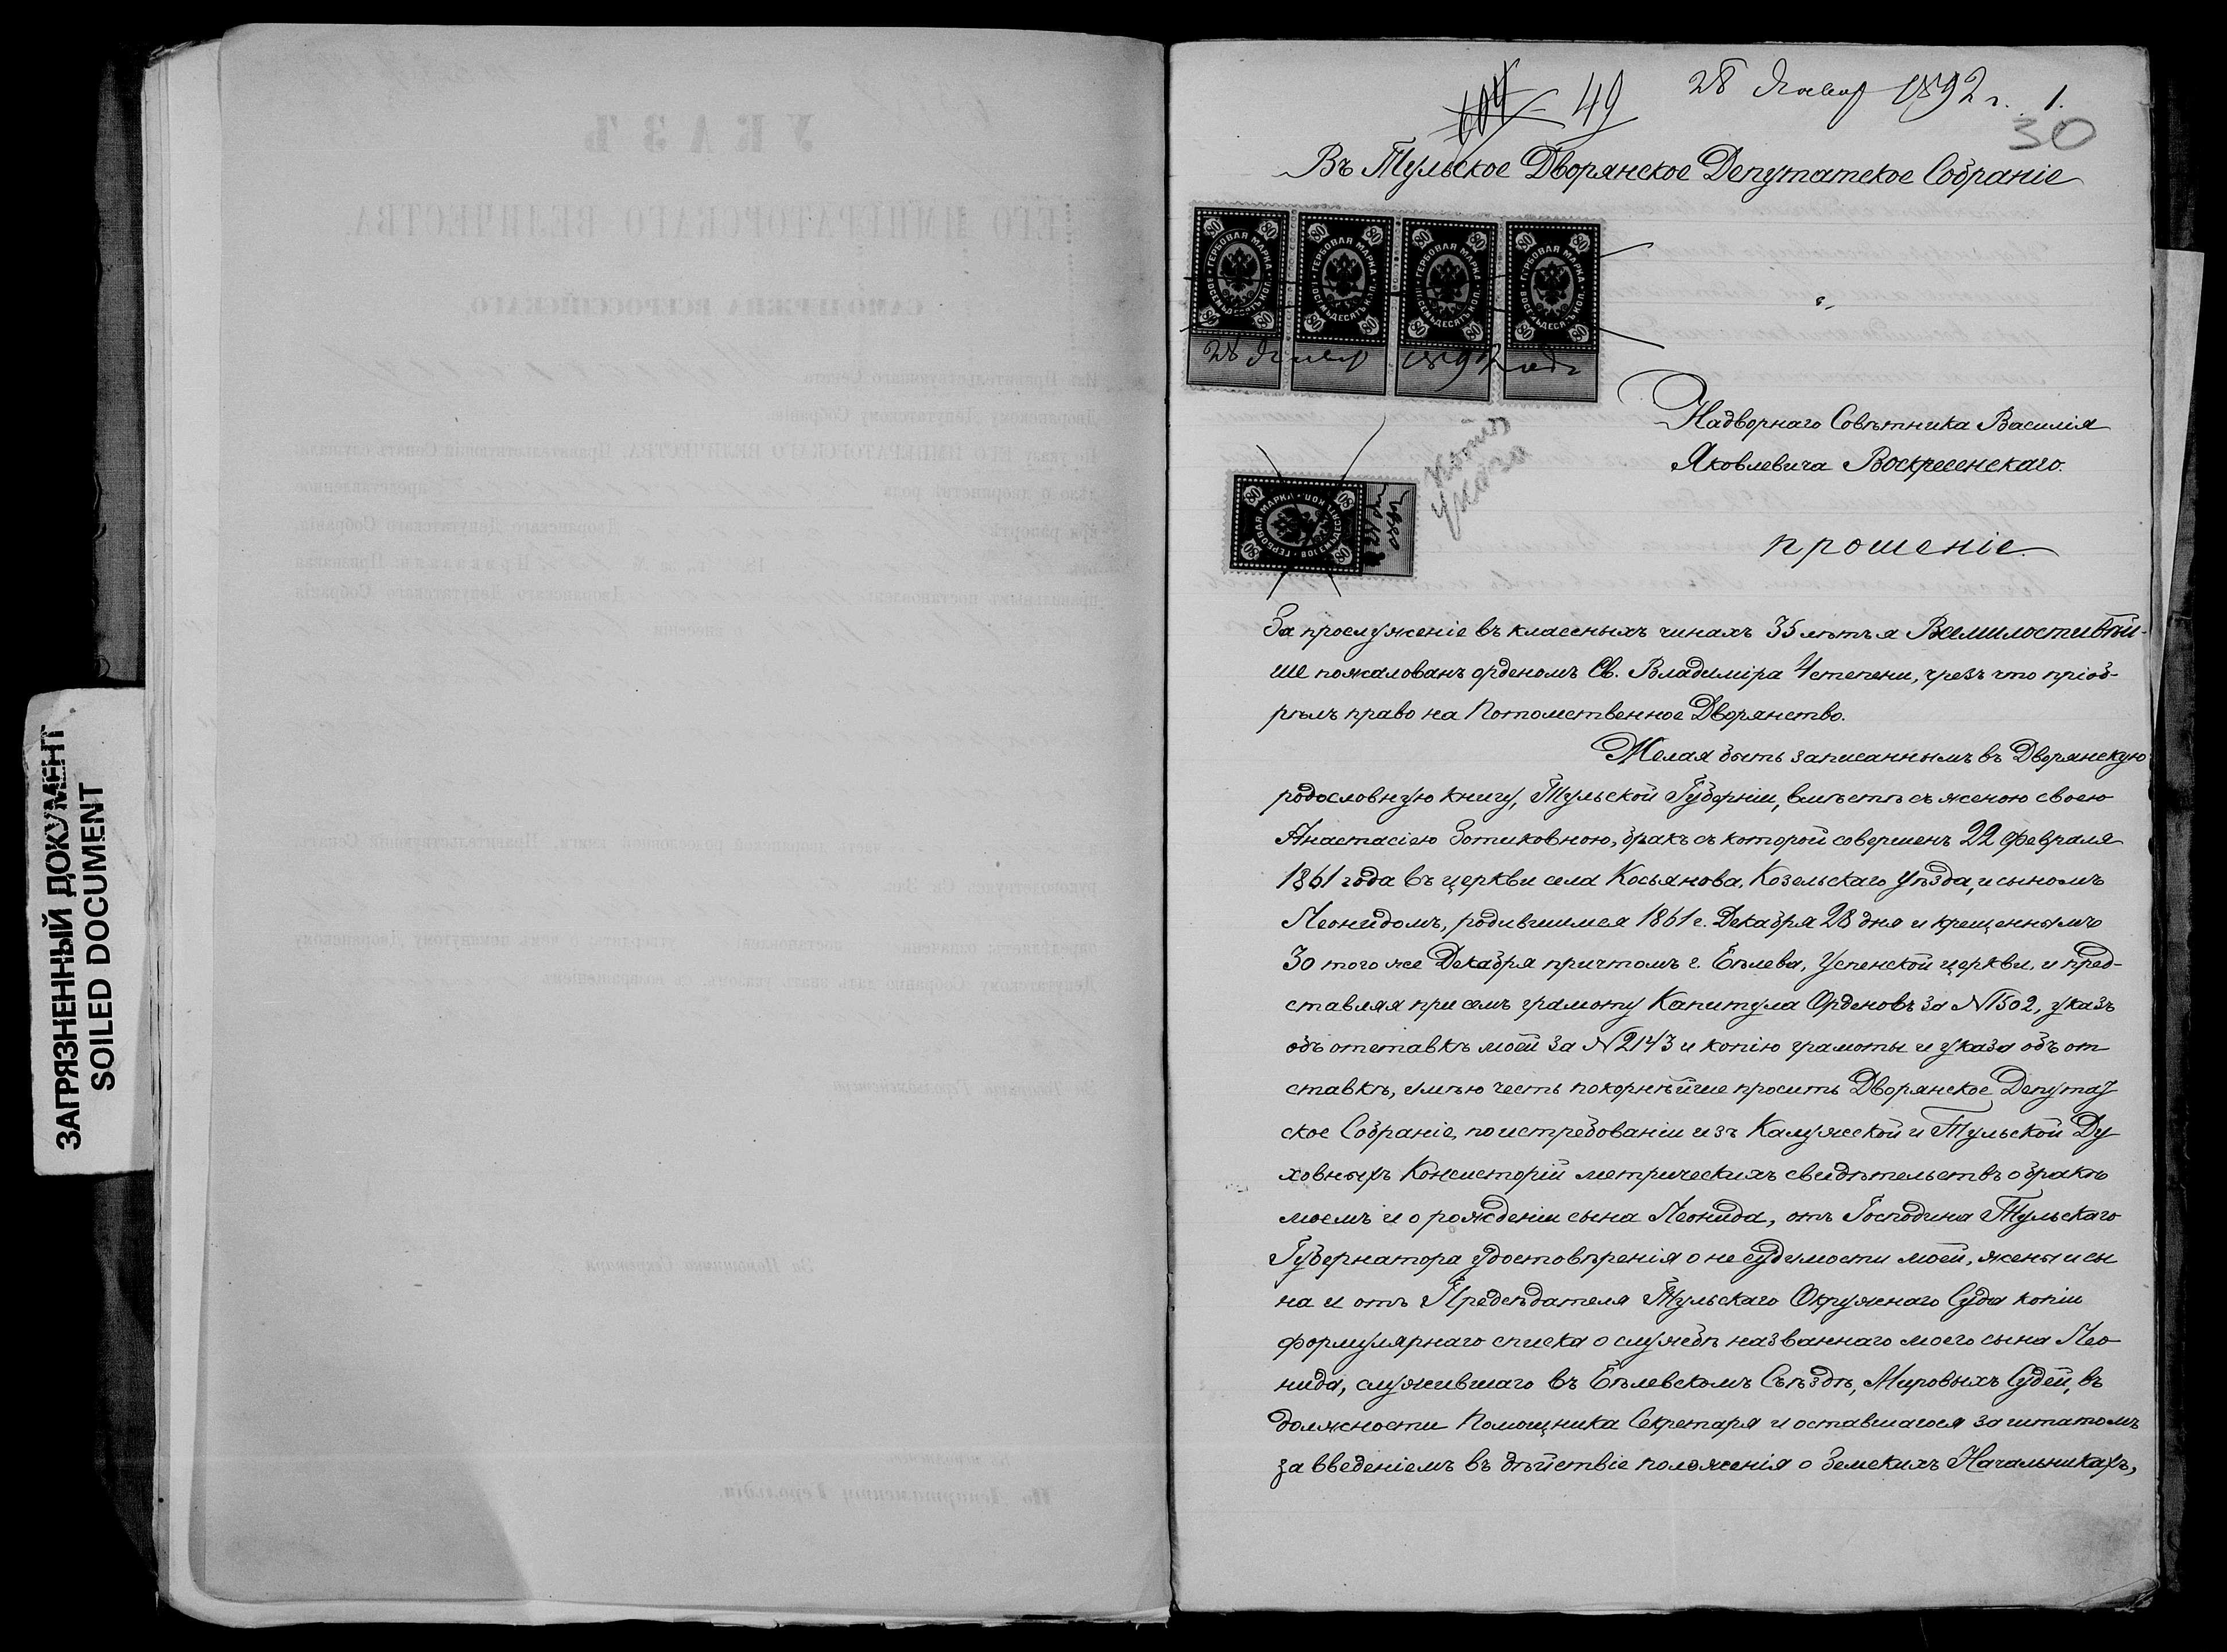 ЗАГРЯЗНЕННЫЙ ДОКУМЕНТ
SOILED DOCUMENT
УКАЗЪ
ЕГО ИМПЕРАТОРСКАГО ВЕЛИЧЕСТВА
САМОДЕРЖЦА ВСЕРОССІЙСКАГО
Изъ Правительствующаго Сената
Дворянскому Депутатскому Собранію
По указу ЕГО ИМПЕРАТОРСКАГО ВЕЛИЧЕСТВА, Правительствующій Сенатъ слушали:
дѣло о дворянствѣ рода представленное
при рапортѣ Дворянскаго Депутатскаго Собранія,
Приказали: Признавая
правильнымъ постановленіе Дворянскаго Депутатскаго Собранія
о внесеніи
часть дворянской родословной книги, Правительствующій Сенатъ,
руководствуясь Св. Зак.
опредѣляетъ: означенн постановлені утвердить; о чемъ показуемому Дворянскому
Депутатскому Собранію дать знать указомъ, съ возвращеніемъ
За Секретаря
По Департаменту Герольдіи.
49 28 Январ 1892 г. 1.
30
Въ Тульское Дворянское Депутатское Собраніе
80 ГЕРБОВАЯ МАРКА ВОСЕМЬДЕСЯТЪ КОП.
80 ГЕРБОВАЯ МАРКА ВОСЕМЬДЕСЯТЪ КОП.
80 ГЕРБОВАЯ МАРКА ВОСЕМЬДЕСЯТЪ КОП.
80 ГЕРБОВАЯ МАРКА ВОСЕМЬДЕСЯТЪ КОП.
28 Январ 1892 года
Надворнаго Совѣтника Василія
Яковлевича Воскресенскаго.
80 ГЕРБОВАЯ МАРКА ВОСЕМЬДЕСЯТЪ КОП.
прошеніе.
За прослуженіе въ классныхъ чинахъ 35 лѣтъ я Всемилостивѣй-
ше пожалованъ орденомъ Св. Владиміра 4 степени, чрезъ что пріоб-
рѣлъ право на Потомственное Дворянство.
Желая быть записаннымъ въ Дворянскую
родословную книгу, Тульской Губерніи, вмѣстѣ съ женою своею
Анастасіею Зотиковною, бракъ съ которой совершенъ 22 Февраля
1861 года въ церкви села Косьянова, Козельскаго уѣзда, и сыномъ
Леонидомъ, родившимся 1861 г. Декабря 28 дня и крещеннымъ
30 того же Декабря причтомъ г. Бѣлева, Успенской церкви, и пред-
ставляя при семъ грамоту Капитула Орденовъ за № 1502, указъ
объ отставкѣ моей за № 2143 и копію грамоты и указа объ от
ставкѣ, имѣю честь покорнѣйше просить Дворянское Депутат
ское Собраніе, по истребованіи изъ Калужской и Тульской Ду
ховныхъ Консисторій метрическихъ свидѣтельствъ о бракѣ
моемъ и о рожденіи сына Леонида, отъ Господина Тульскаго
Губернатора удостовѣренія о несудимости моей, жены и сы
на и отъ Предсѣдателя Тульскаго Окружнаго Суда копіи
формулярнаго списка о службѣ названнаго моего сына Лео
нида, служившаго въ Бѣлевскомъ Съѣздѣ, Мировыхъ Судей, въ
должности Помощника Секретаря и оставшагося за штатомъ
за введеніемъ въ дѣйствіе положенія о Земскихъ Начальникахъ,